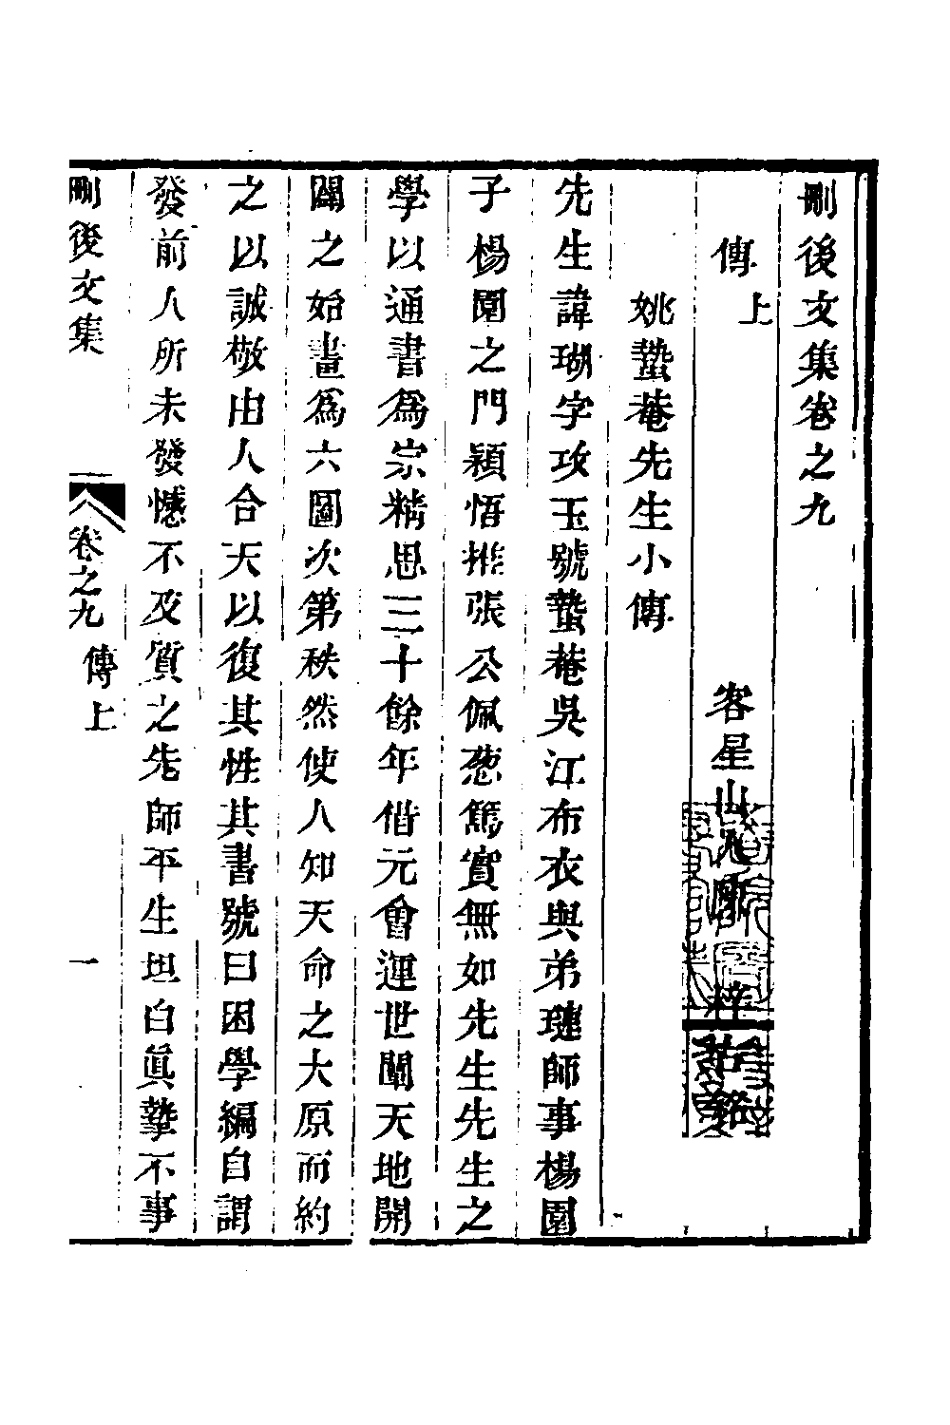 刪後文集卷之九
傳上
客星山
姚蟄菴先生小傳
先生諱瑚字攻玉號蟄菴吳江布衣與弟璉師事楊園
子楊園之門穎悟推張公佩蔥篤實無如先生先生之
學以通書爲宗精思三十餘年借元會運世闡天地開
闢之始畫爲六圖次第秩然使人知天命之大原而約
之以誠敬由人合天以復其性其書號曰困學編自謂
發前人所未發憾不及質之先師平生坦白眞摯不事
刪後文集
卷之九
傳上
一